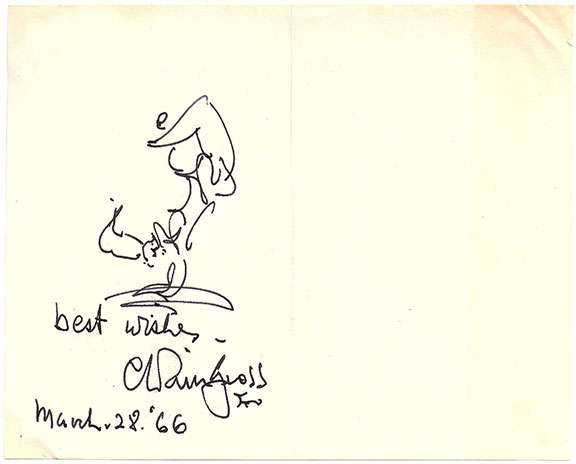 best wishes -
Chaim Gross
March. 28. '66